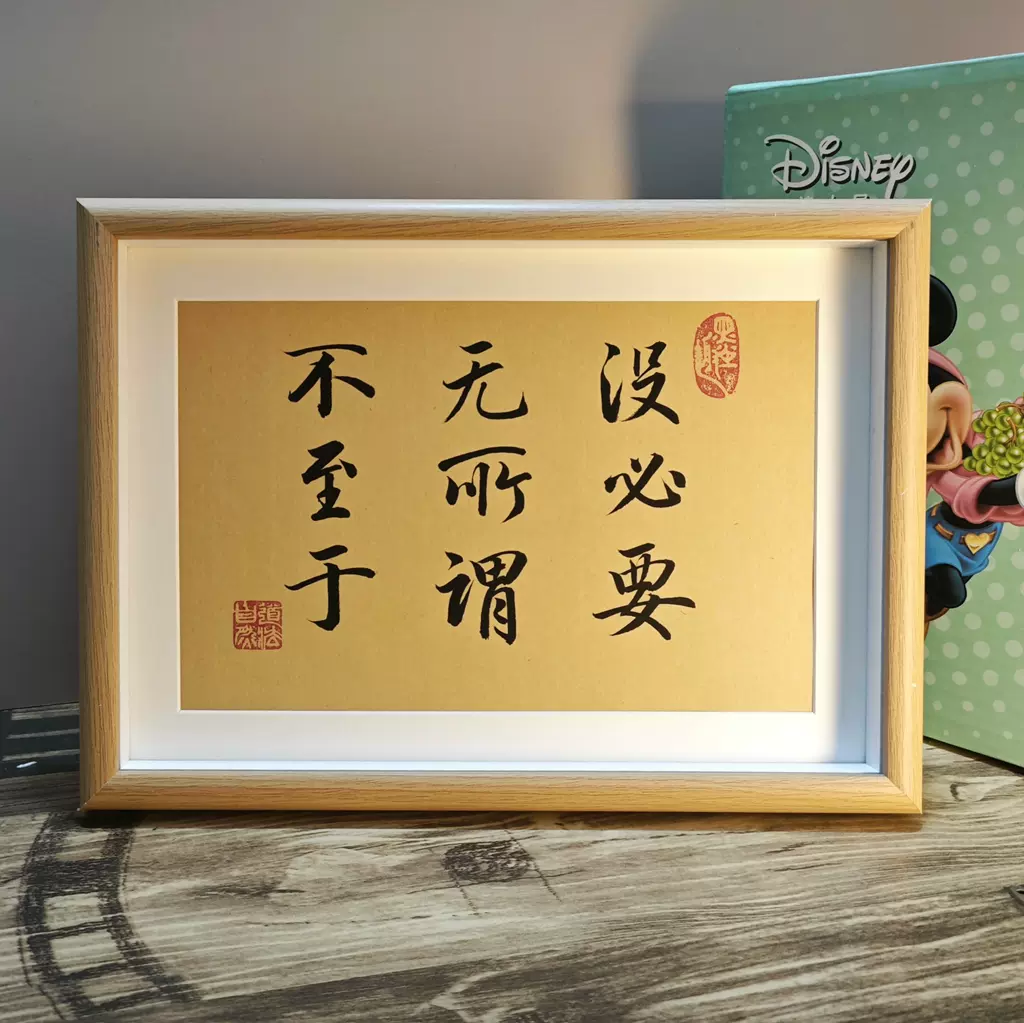 没必要
无所谓
不至于
道法自然
DISNEY